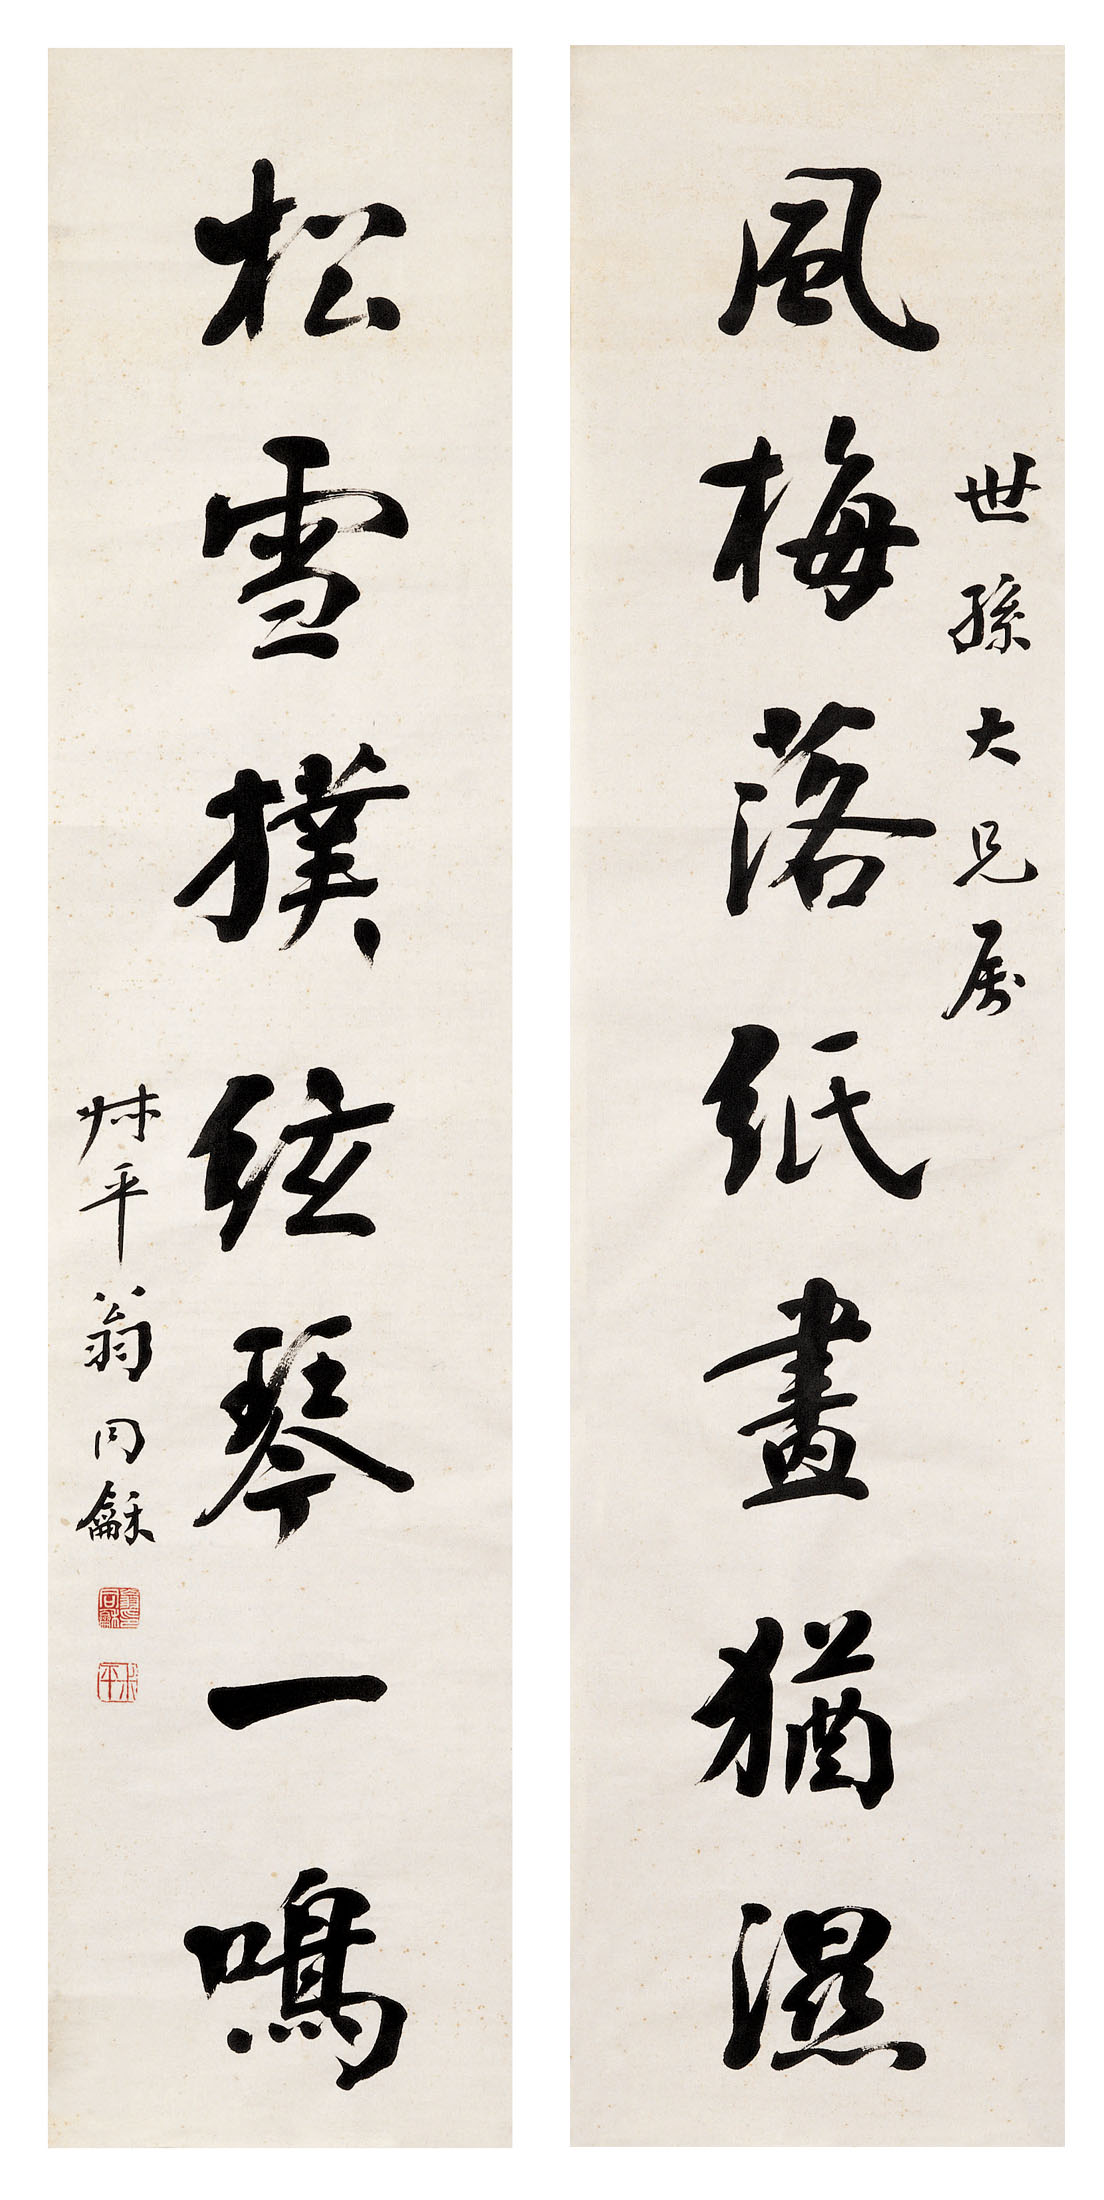 世孫大兄属
風梅落紙畫猶濕
松雪撲絃琴一鳴
叔平翁同龢
翁同龢印
叔平